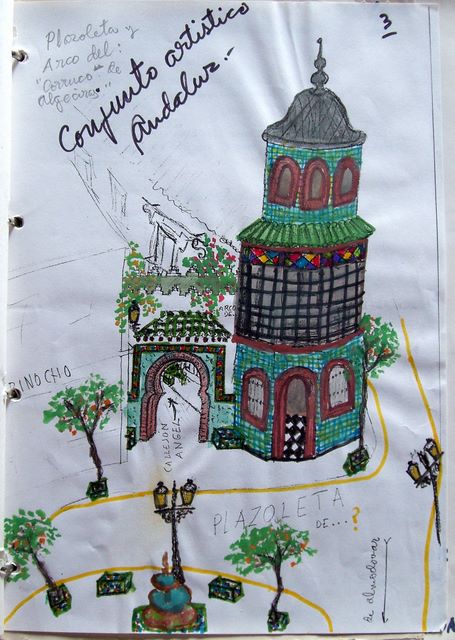 3
Plazoleta y
Arco del:
"Corruco de
Algeciras"
Conjunto artistico
Andaluz.-
ARCO
DEL
PINOCHIO
CALLEJÓN
ANGEL
PLAZOLETA
DE...?
de almodovar